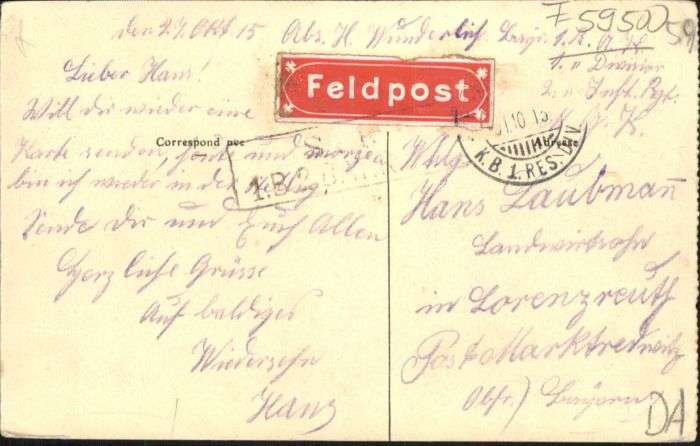 F 59500
59
den 29. Okt 15 Abs. H. Wunderlich Bayr. 1. R.
1. " Division
2. " Inft. Rgt.
Feldpost
Lieber Hans!
Will dir wieder eine
Correspond nce
Adresse
Karte senden, heute und morgen
bin ich wieder in der
Sende dir und Euch Allen
Herzliche Grüsse
Auf baldiges
Wiedersehn
Hans
1.B.
.10 15
K.B 1. RES. DIV
Hans Laubmann
Landwirtsohn
in Lorenzreuth
Post Marktredwitz
Obfr.) Bayern
DA